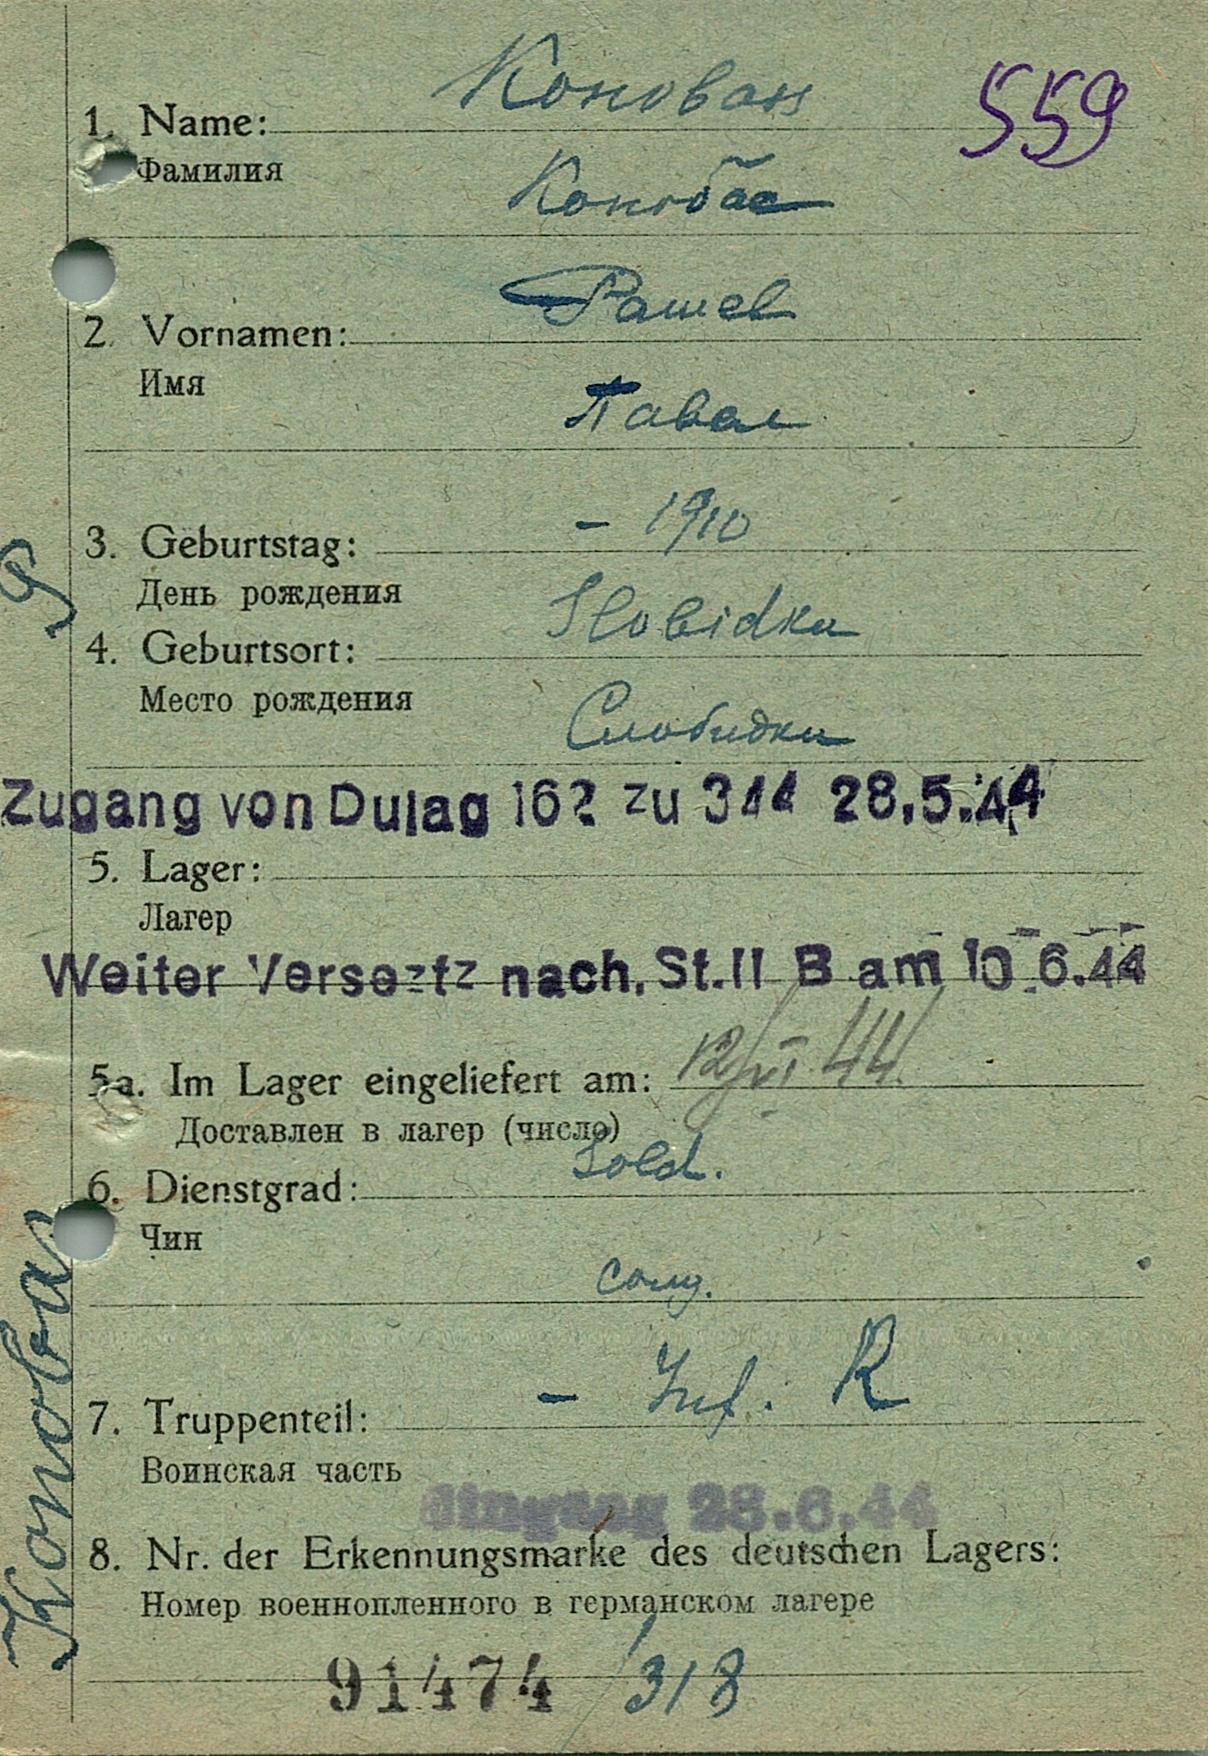 559
Коновал
1. Name:
Фамилия
2. Vornamen:
Имя
Павел
- 1910
3. Geburtstag:
День рождения
Slobidka
4. Geburtsort:
Место рождения
Слобидка
Zugang von Dulag 162 zu 344 28.5.44
5. Lager:
Лагер
Weiter Versetzt nach. St. II B am 10.6.44
5a. Im Lager eingeliefert am: 12/VI 44
Доставлен в лагер (число)
Sold.
6. Dienstgrad:
Чин
солд.
- Inf. R
7. Truppenteil:
Воинская часть
Eingang 28.6.44
8. Nr. der Erkennungsmarke des deutschen Lagers:
Номер военнопленного в германском лагере
91474 /318